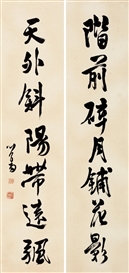 階前碎月鋪花影
天外斜陽帶遠帆
心畬